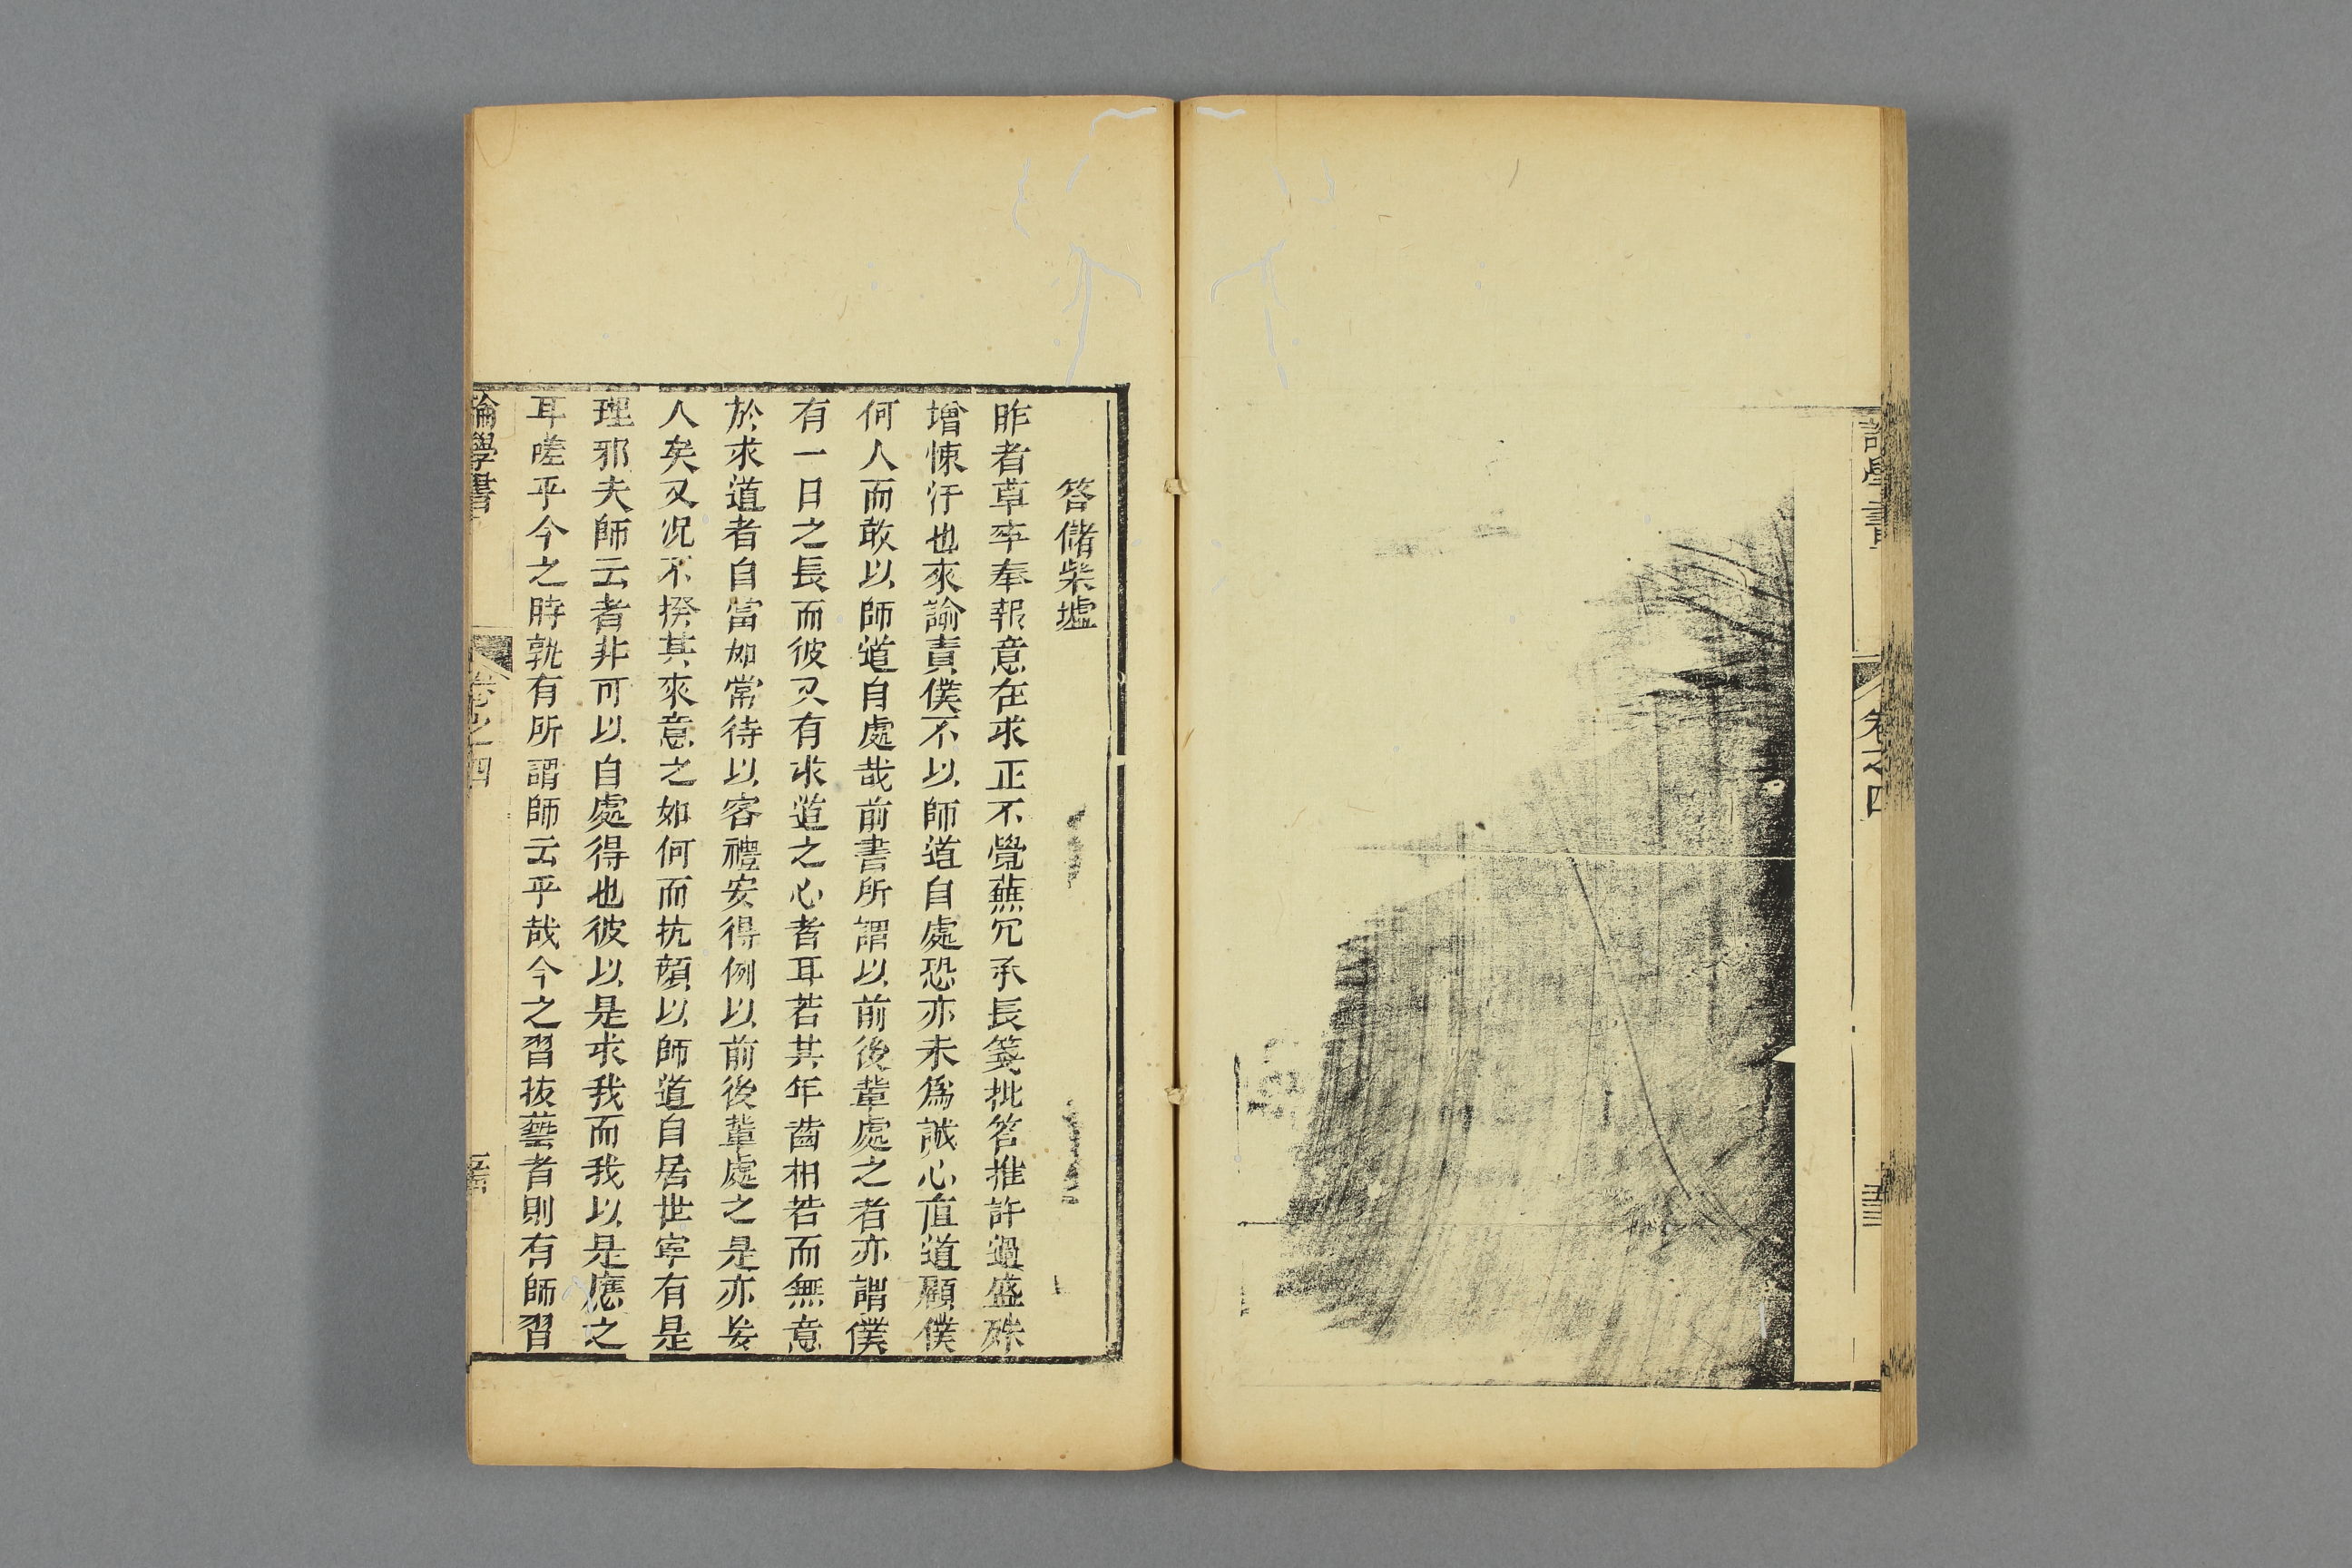 論學書
卷之四
答儲柴墟
昨者草率奉報意在求正不覺蕪冗承長箋批答推許過盛殊
增悚汗也來諭責僕不以師道自處恐亦未爲誠心直道顧僕
何人而敢以師道自處哉前書所謂以前後輩處之者亦謂僕
有一日之長而彼又有求道之心者耳若其年齒相若而無意
於求道者自當如常待以客禮安得例以前後輩處之是亦妄
人矣又况不揆其來意之如何而抗顔以師道自居世寧有是
理邪夫師云者非可以自處得也彼以是求我而我以是應之
耳嗟乎今之時孰有所謂師云乎哉今之習技藝者則有師習
論學書
卷之四